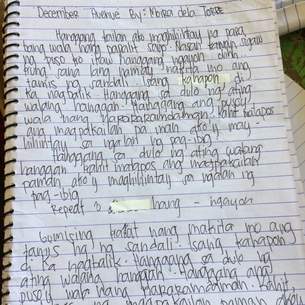 December Avenue By: Moira dela Torre
Hanggang kailan ako maghihintay na para
bang wala nang papalit sayo. Nasan
ng puso ko itaw hanggang ngayon
trung sana lang manlay makita mo ang
tamis ng sandali isang kahapon di
ka nagbalik. Hanggang sa dulo ng ating
walang hanggan. Hanggang ang puso'y
wala nang nararamdaman. Kahit matapos
ang magpakailan pa man ako'y mag-
hihintay sa ngalan ng pag-ibig
Hanggang sa dulo ng ating walang
hanggan. Kahit matapos ang magpakailan
paman ako'y maghihintay sa ngalan ng
pag-ibig
Repeat 3 hang - ngayon
Gumising kahit nang makita mo ang
ng sandali. Isang kahapon
di ka nagbalik. Hanggang sa dulo ng
ating walang hanggan. Hanggang ang
puso'y wala nang nararamdaman. Kahit
hanggang magpakailan paman, ako